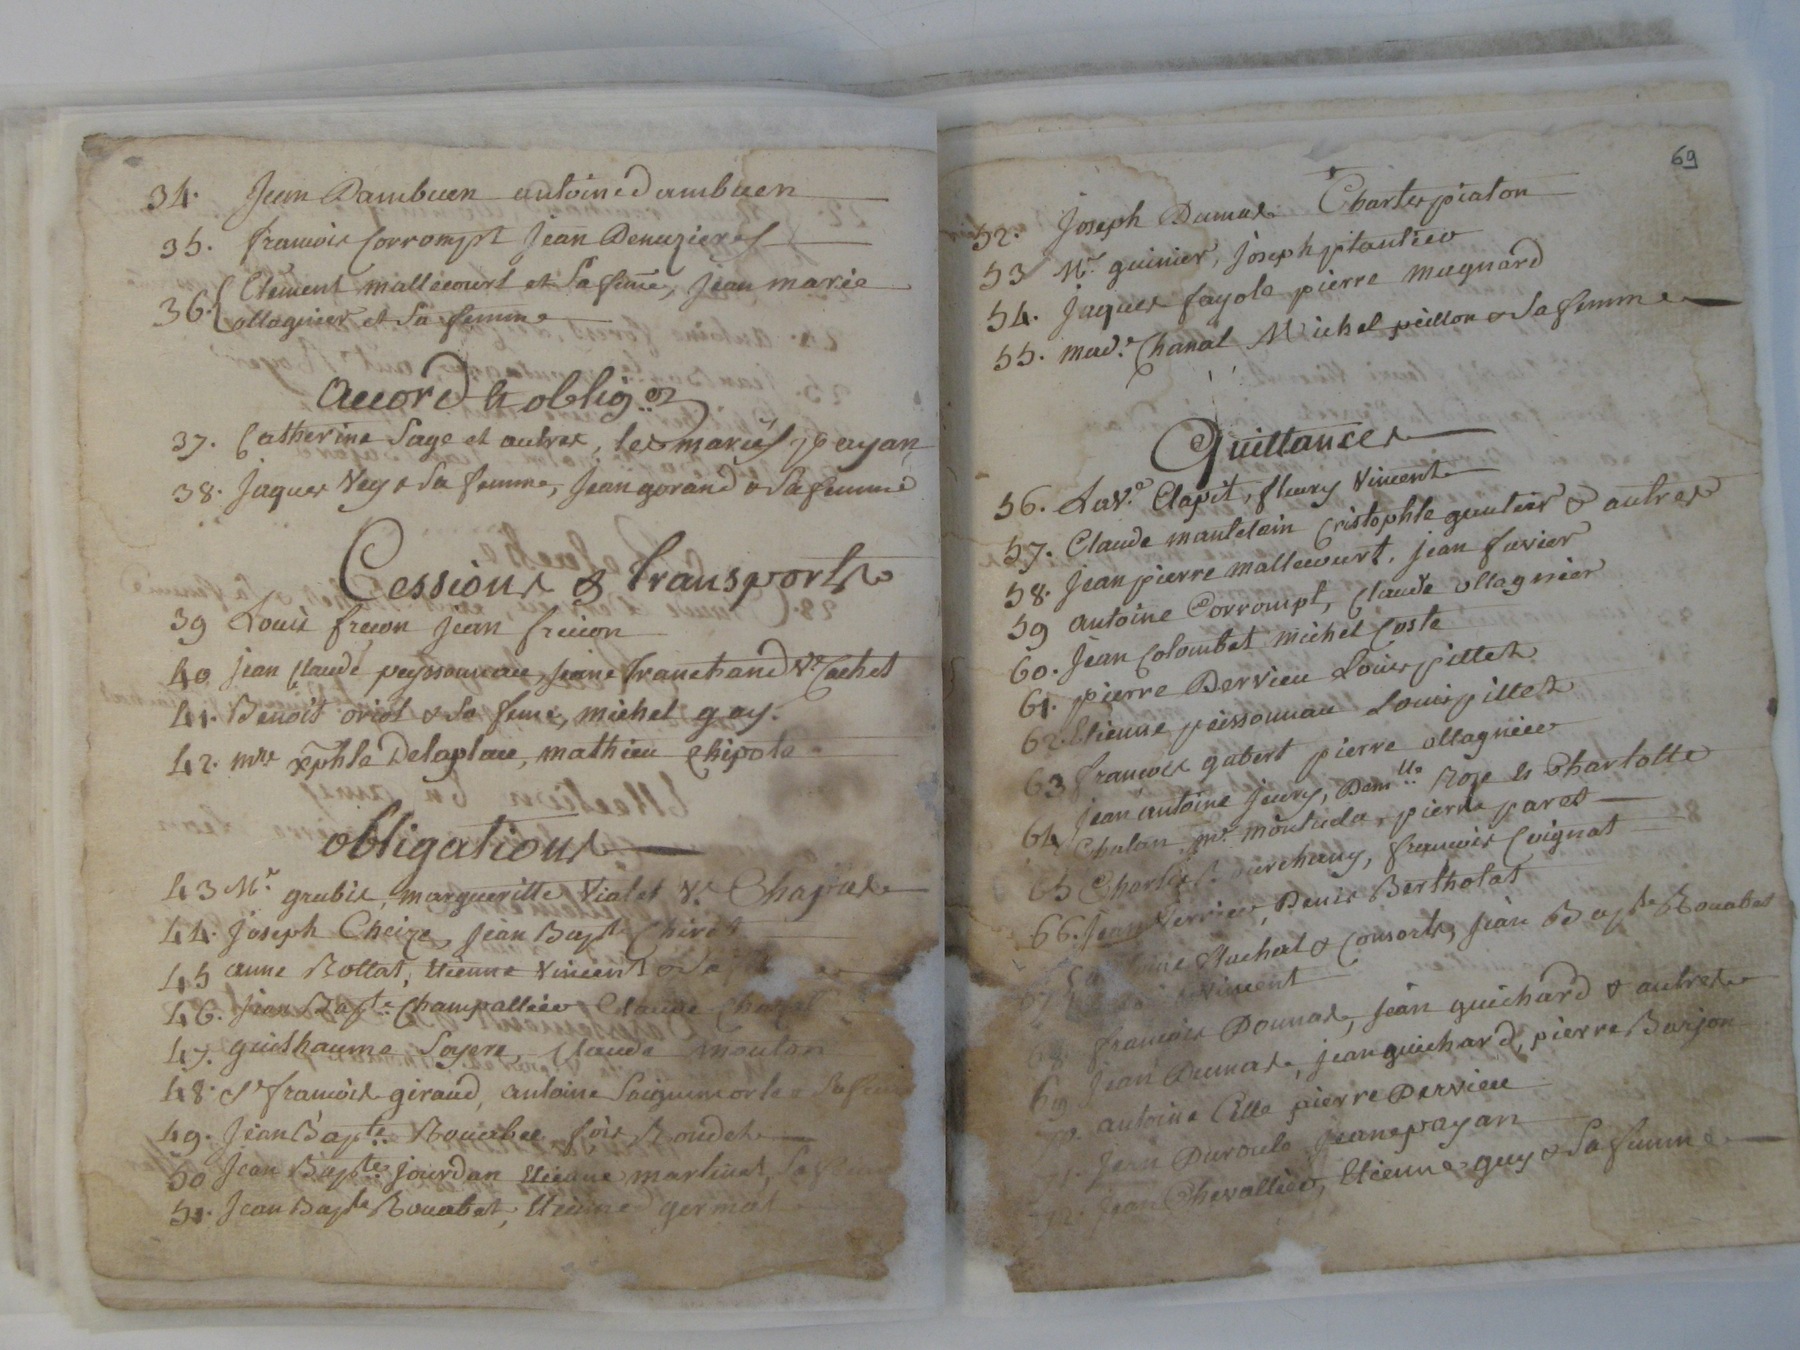 34. Jean Dambuen antoine dambuen
35. francois Corrompt Jean Denuzieres
36. Clement mallecourt et sa feme, Jean marie
ollagnier et sa femme
accord & oblig.on
37. Catherine Sage et autres, les mariés payan
38. Jaques Vey & sa femme, Jean gorand & sa femme
Cessions & transports
39 Louis frecon Jean frecon
40 jean Claude peyssonneau, jeane Franchand Ve Cachet
41. Benoit oriol & sa feme, michel gay.
42. mre xphle Delaplace, mathieu Chipote
obligations
43 Mr. grubis, margueritte Vialet Ve. Chapuis
44. Joseph Cheize, Jean Bapte Chirat
45 anne Rollat, etienne Vincent & sa
46. jean Bapte Champallier Claude Chazal
47. guilhaume Soyere, Claude moulan
48. Sr francois giraud, antoine Saignemorte & sa fem
49. Jean Bapte. Rouabet fois Roudet
50 Jean Bapte jourdan etienne martinet, sa
51. Jean Bapte Rouabet, etienne germat
69
52. Joseph Dumas Charles piaton
53 Mr. guinier, joseph plantier
54. jaques fayole pierre magnard
55. made. Chanal Michel peillon & sa femme
Quittances
56. La Ve Clapit, fleury Vincent
57. Claude mantelain Cristophle gautier & autres
58. Jean pierre mallecourt, jean favier
59 antoine Corrompt, Claude ollagnier
60. Jean Colombet michel Coste
61. pierre Dervieu Louis pillet
62. Etienne peissonnau Louis pillet
63 francois gabert pierre ollagnier
64 Jean antoine Jeury, Demlle Roze & Charlotte
Chalan, mr. montuela, pierre paret
65 Charles Durchany, francois Coignat
66. Jean Verrier, Denis Berthotat
67 Antoine Rachat & Consorts, jean Bapte Rouabet
Vincent
68 francois Doumas, jean guichard & autres
69 Jean Dumas, jean guichard, pierre Barjon
70. antoine Cille pierre Dervieu
71. Jean Duroule Jeane payan
72. Jean Chevallier, Etienne guy & sa femme